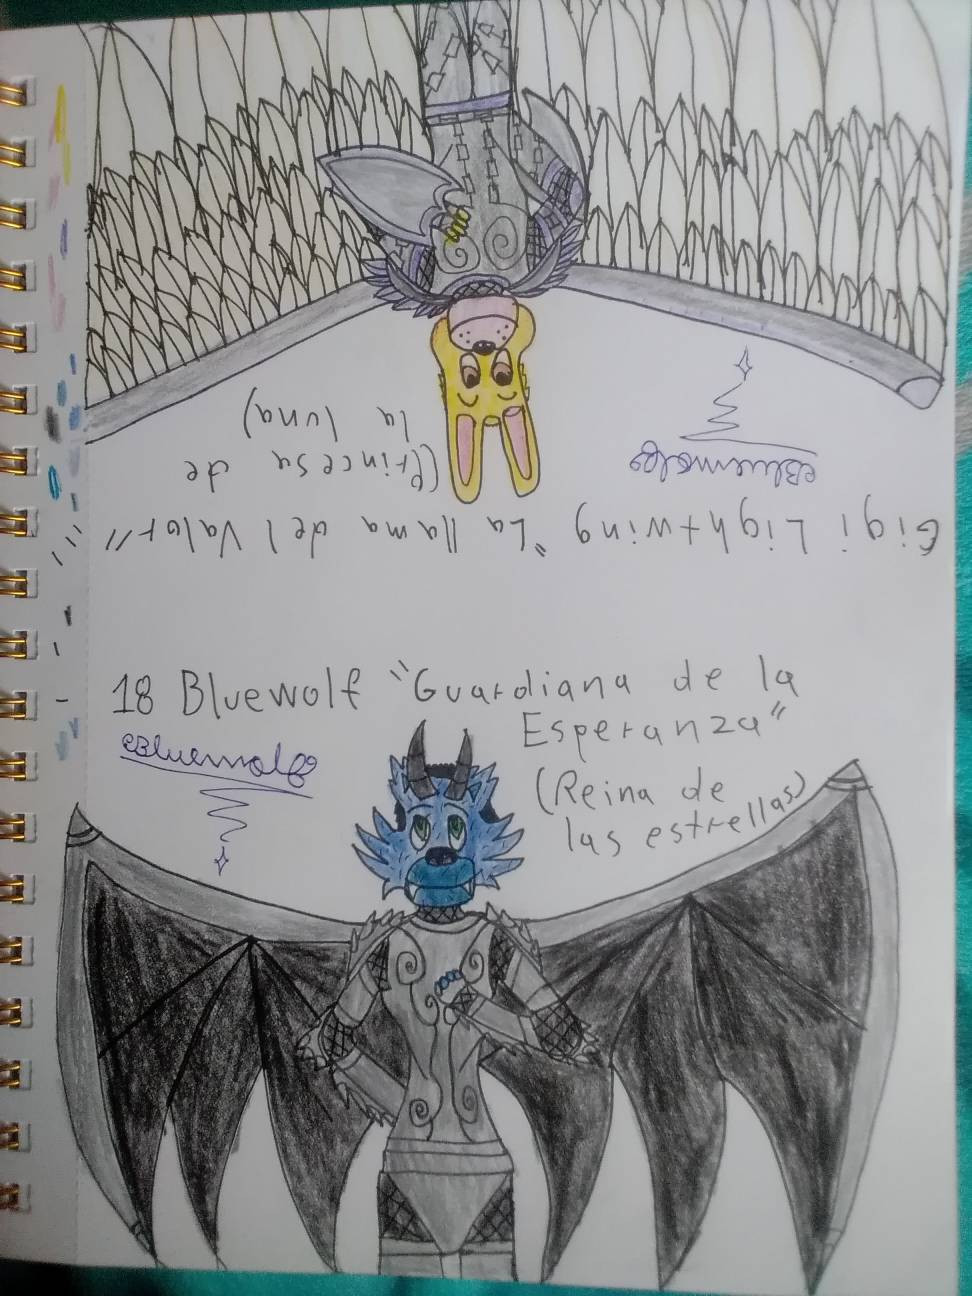 Gigi Lightwing "La llama del Valor"
(Princesa de
la luna)
Bluewolf
18 Bluewolf "Guardiana de la
Esperanza"
(Reina de
las estrellas)
Bluewolf